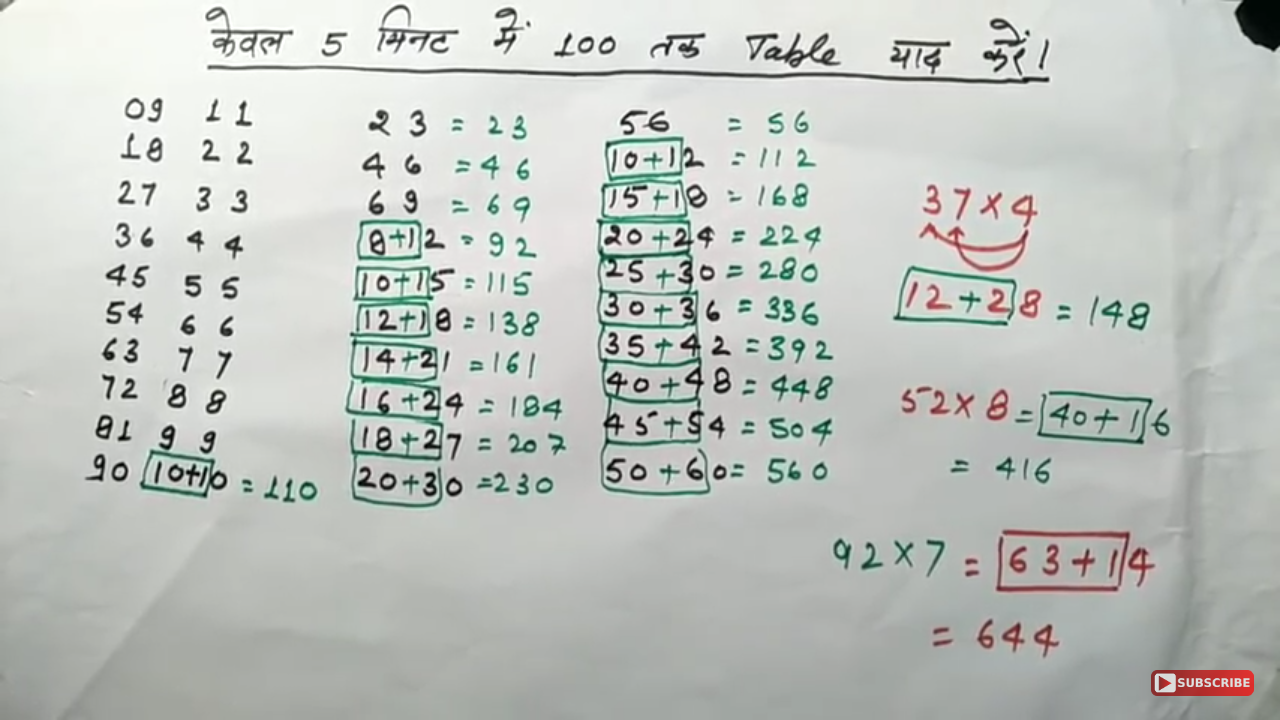 केवल 5 मिनट में 100 तक Table याद करें।
09 11
18 22
27 33
36 44
45 55
54 66
63 77
72 88
81 99
90 10+10 = 110
23 = 23
46 = 46
69 = 69
8+12 = 92
10+15 = 115
12+18 = 138
14+21 = 161
16+24 = 184
18+27 = 207
20+30 = 230
56 = 56
10+12 = 112
15+18 = 168
20+24 = 224
25+30 = 280
30+36 = 336
35+42 = 392
40+48 = 448
45+54 = 504
50+60 = 560
37×4
12+28 = 148
52×8 = 40+16
= 416
92×7 = 63+14
= 644
SUBSCRIBE